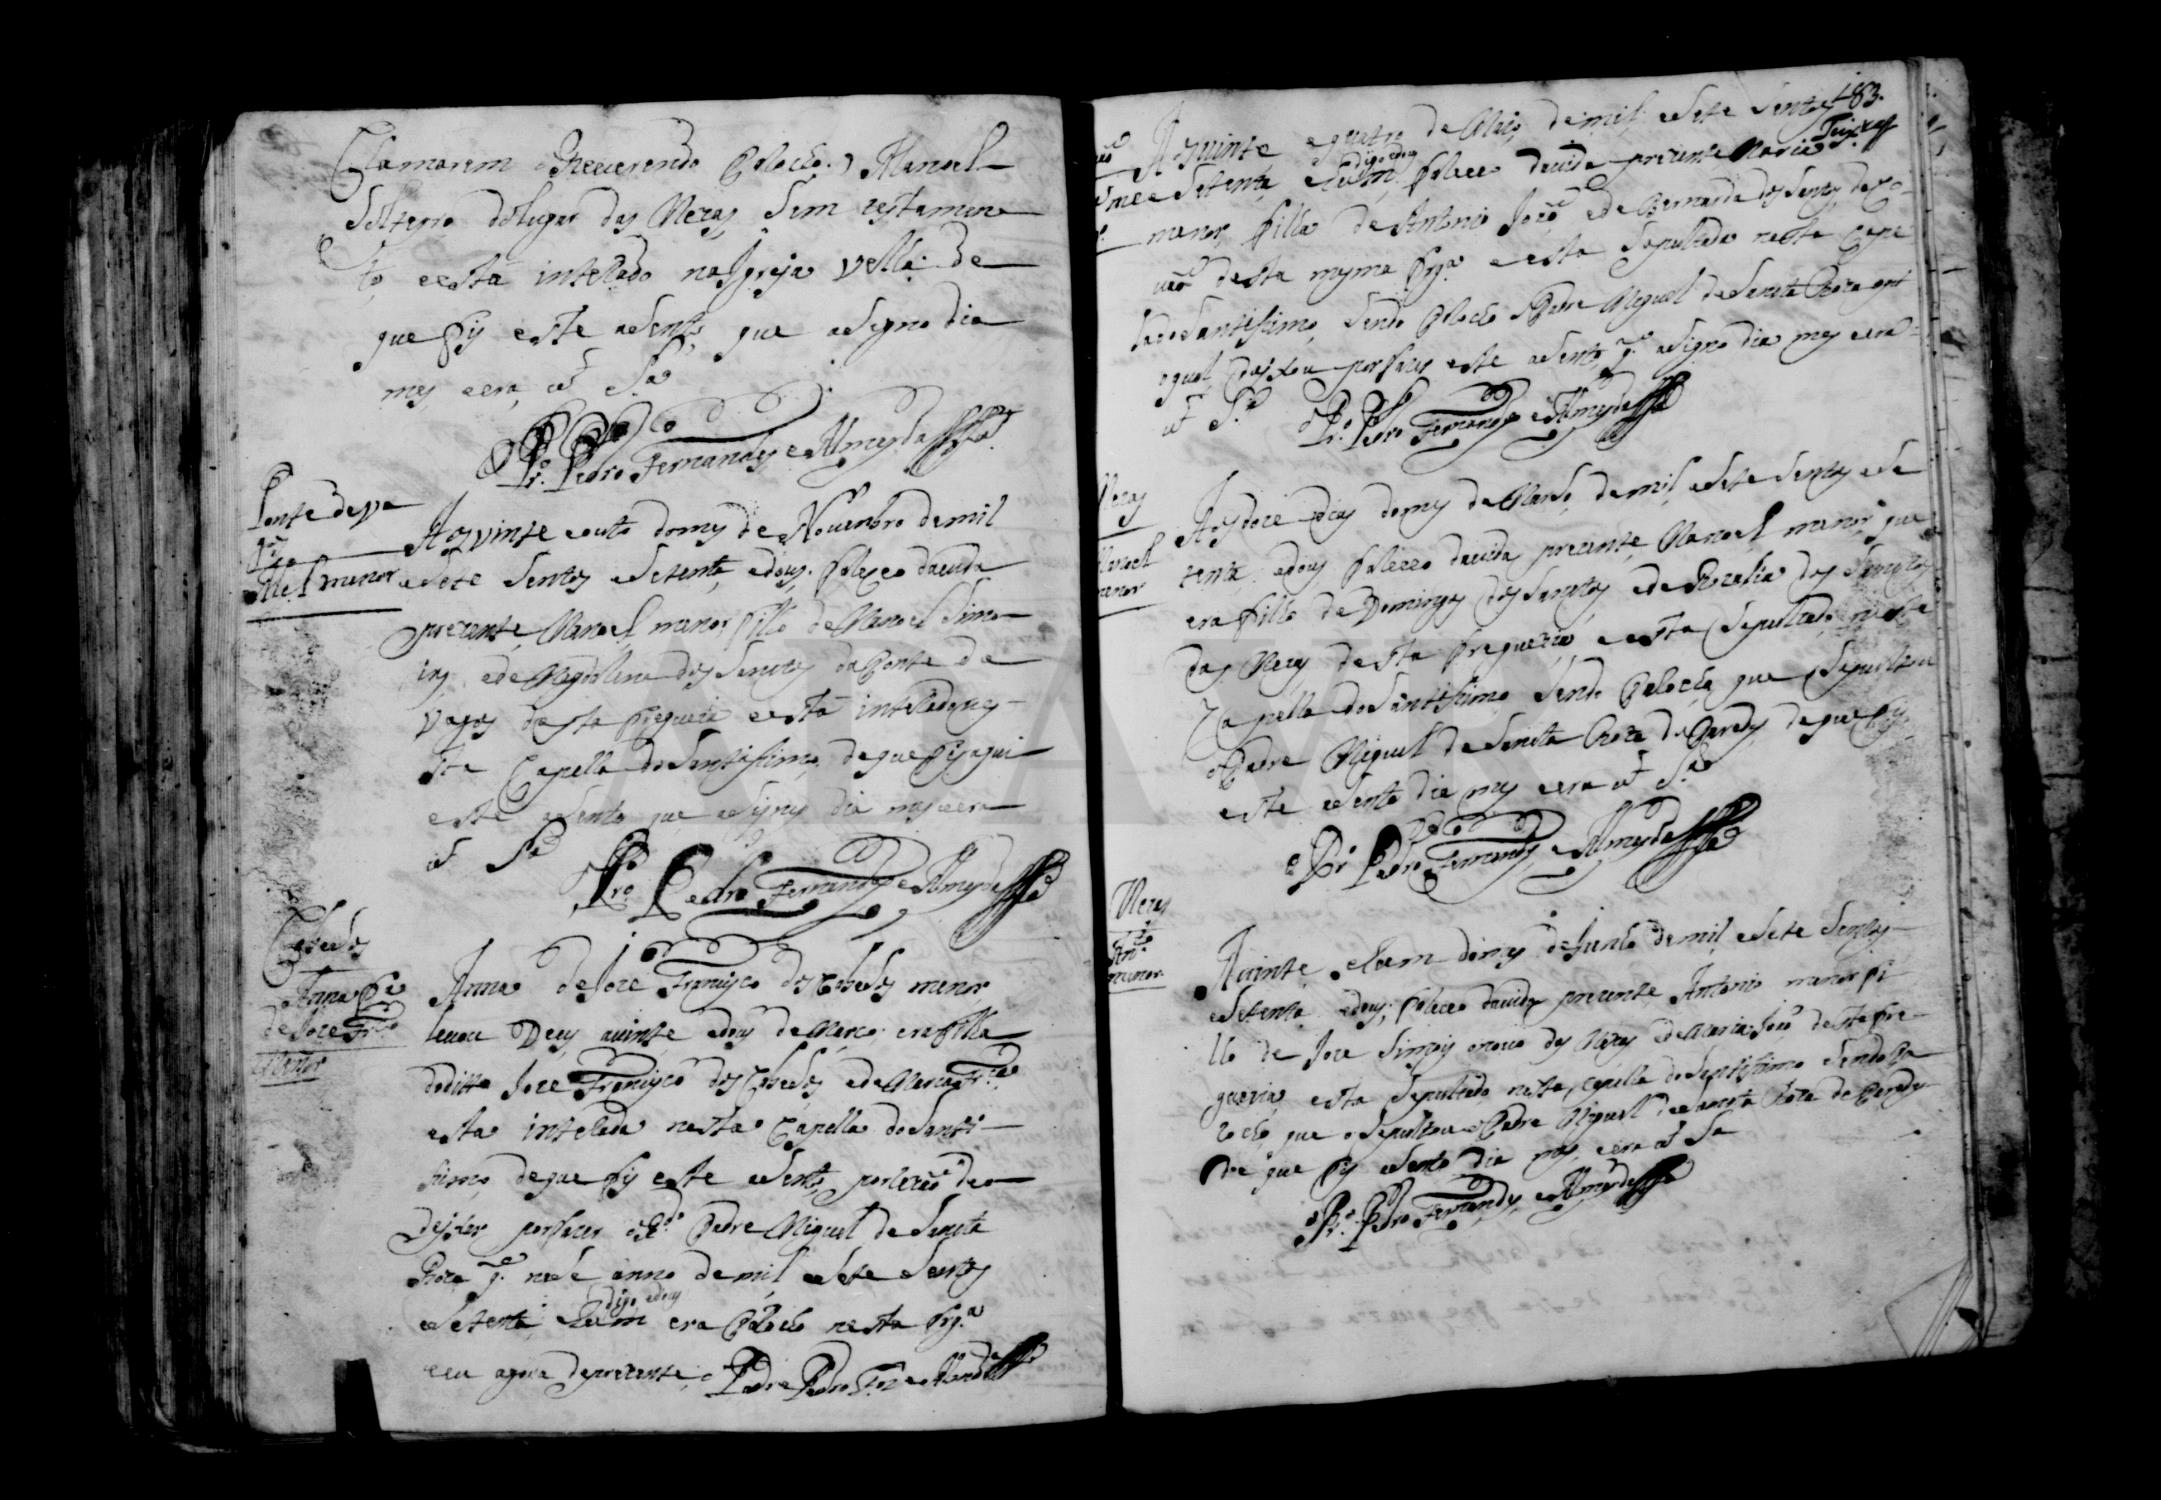 Clamorem o Reverendo Paroco. Manoel
Solteyro do lugar das Mezas, sem testamen
to, e esta interrado na Igreja velha de
que fis este asento, que asigno dia
mes, e era, ut Sa
o Pr. Pedro Fernandes e Almeyda
Ponte de Va
gos
Mel menor
Aos vinte e outo do mes de Novenbro de mil
e sete sentos e setenta, e dous, faleceo da vida
prezente, Manoel menor filho de Manoel Simo
ins, e de Magdalena dos Santos da Ponte de
Vagos desta freguezia e esta interrado nes
ta Capella do Santissimo, de que fis aqui
este asento que asigney dia mes e era
ut Sa
Pro. Pedro Fernandes e Almeyda
Anna fa
de Joze Fr.co
Menor
Anna de Joze Francisco dos menor
levou Deos a vinte e dous de Março, era filha
do ditto Joze Francisco dos e de Maria Fr.ca
esta interrada nesta Capella do Santi
simo, de que fis este asento, por
deichar por fazer o R.do Padre Miguel de Santa
Roza q. nese anno de mil e sete sentos
digo e dous
e setenta, e hum era Paroco nesta frg.a
e eu agora de prezente, o Padre Pedro Frz e Almda
183.
Aos vinte e quatro de Maio, de mil e sete sentos
digo e dous
e setenta, e hum, faleceo da vida prezente Maria
menor, filha de Antonio e de Bernarda dos Santos
desta mesma frg.a e esta sepultada nesta Cape
la do Santissimo, sendo Paroco o Padre Miguel de Santa Roza
o qual deixou por fazer este asento q. asigno dia mes e era
ut Sa
o Pr. Pedro Fernandes e Almeyda
Mezas
Manoel
menor
Aos doze dias do mes de Março, de mil, e sete sentos e se
tenta, e dous faleceo da vida prezente, Manoel menor que
era filho de Domingos dos Santos, e de Rozalia dos Santos
das Mezas desta freguezia, e esta sepultado nesta
Capella do Santissimo, sendo Paroco, que sepultou
o Padre Miguel de Santa Roza de que fis
este asento dia mes e era ut Sa
o Pr. Pedro Fernandes e Almeyda
Mezas
Ant.o
menor
A vinte, e hum do mes de Junho de mil, e sete sentos
e setenta e dous, faleceo da vida prezente Antonio menor fi
lho de Joze Simois das Mezas e de Maria desta fre
guezia, esta sepultado nesta Capella do Santissimo sendo Pa
roco, que o sepultou o Padre Miguel de Santa Roza
de que fis asento dia mes e era ut Sa
o Pr. Pedro Fernandes e Almeyda